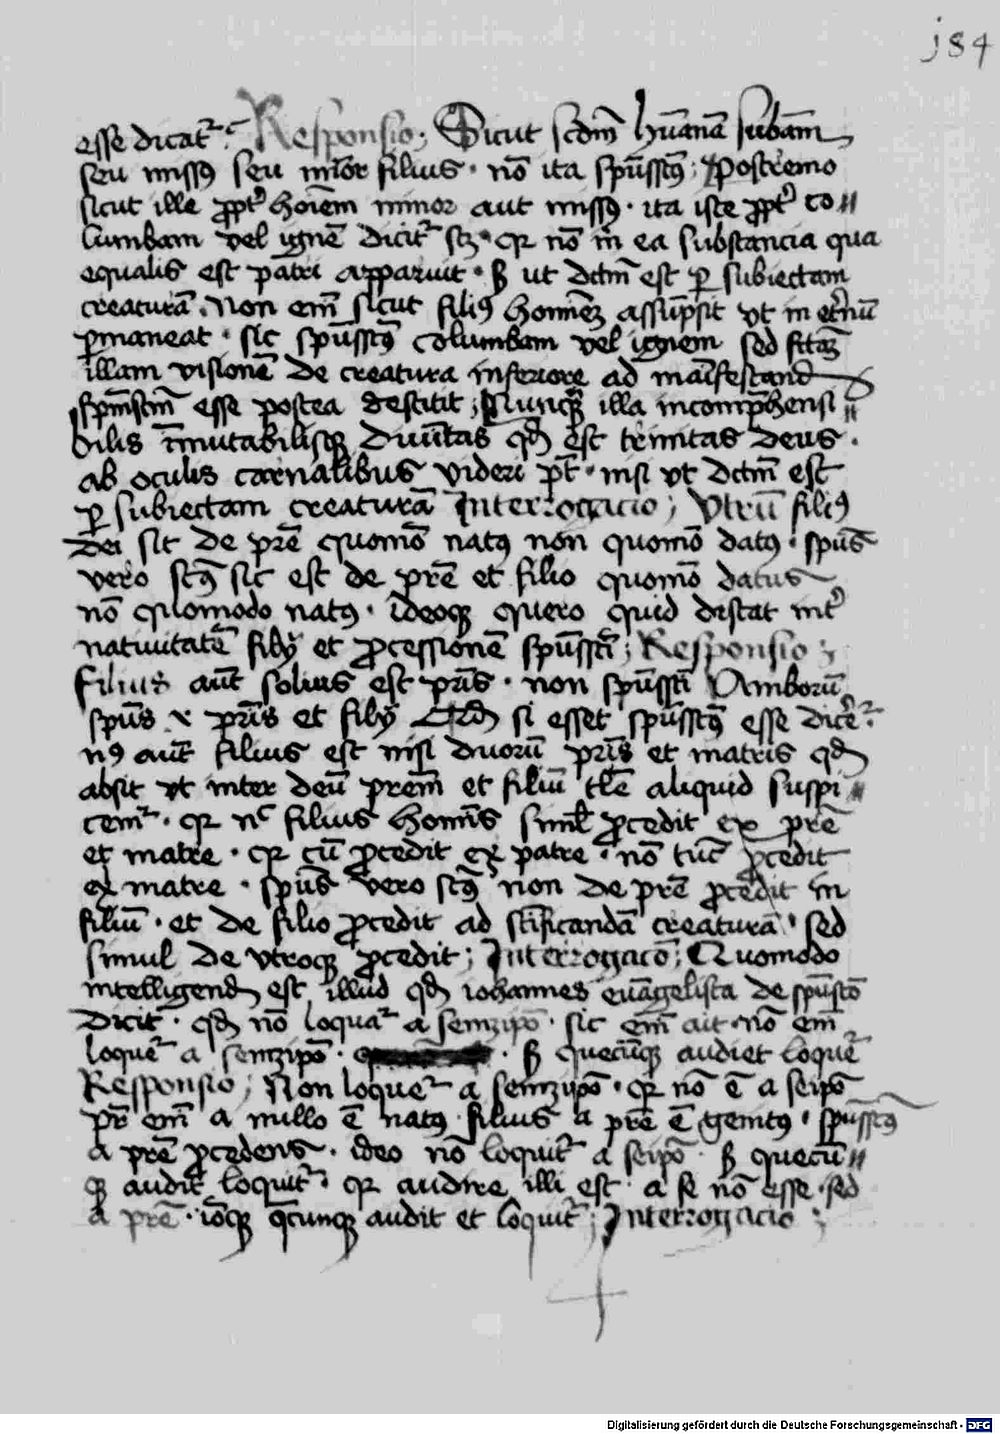 184
esse dicat͛ . Responsio . Sicut scdm̄ hūanā subam̄
seu miss9 seu mīor filius . nō ita spūssct9 ; Postremo
sicut ille ꝓpt̉ hoiēm minor aut miss9 . ita iste ꝓpt̉ co〃
lumbam vel ignē dicit͛ scꝫ . qꝛ nō in ea substancia qua
equalis est patri apparuit . ꝫ ut dc̄m est ꝑ subiectam
creaturā . Non em̄ sicut fili9 hominēꝫ assūpsit vt in et̉nū
ꝑmaneat . sic spūssct9 columbam vel ignem sed fc̄aꝫ
illam visionē de creatura inferiore ad maīfestand
spm̄scm̄ esse postea destitit ; Nunqꝫ illa incomp̄hensi〃
bilis īmutabilisqꝫ diuītas qd̄ est trinitas deus .
ab oculis carnalibus videri pt̄ . nisi vt dc̄m est
ꝑ subiectam creaturā Interrogacio ; Vtrū fili9
dei sit de p̄re quomō nat9 non quomō dat9 . spūs
vero sct9 sic est de p̄re et filio quomō datus
nō quomodo nat9 . ideoqꝫ quero quid distat int̉
natiuitatē filÿ et ꝓcessionē spūsscti ; Responsio ;
Filius aūt solius est p̄ris . non spūsscti Amborū
spūs v p̄ris et filÿ Qd̄ si esset spūssct9 esse dicēr͛
n9 aūt filius est nisi duorū p̄ris et matris qd̄
absit vt inter deū p̄rem et filiū tl̄e aliquid suspi〃
cem͛ . qꝛ nc̄ filius homīs siml̄ ꝓcedit ex p̄re
et matre . qꝛ cū ꝓcedit ex patre . nō tūc ꝓcedit
ex matre . spūs vero sct9 non de p̄re ꝓcedit in
filiū . et de filio ꝓcedit ad sc̄ificandā creaturā . sed
simul de vtroqꝫ ꝓcedit ; Interrogacō ; Quomodo
intelligend̄ est illud qd̄ iohannes euāgelista de spūsctō
dicit . qd̄ nō loquat͛ a semꝫipō . sic em̄ ait . nō em̄
loquet͛ a semꝫipō . ꝫ quecūqꝫ audiet loquet͛
Responsio ; Non loquet͛ a semꝫipō . qꝛ nō ē a seipō
pr̄ em̄ a nullo ē nat9 . filius a p̄re ē genit9 . spūssct9
a p̄re ꝓcedens . ideo nō loquit͛ a seipō . ꝫ quecū〃
qꝫ audit loquit͛ . qꝛ audire illi est . a se nō esse . sed
a p̄re . iō qꝫ qcunqꝫ audit et loquit͛ ; Interrogacio ;
Digitalisierung gefördert durch die Deutsche Forschungsgemeinschaft - DFG